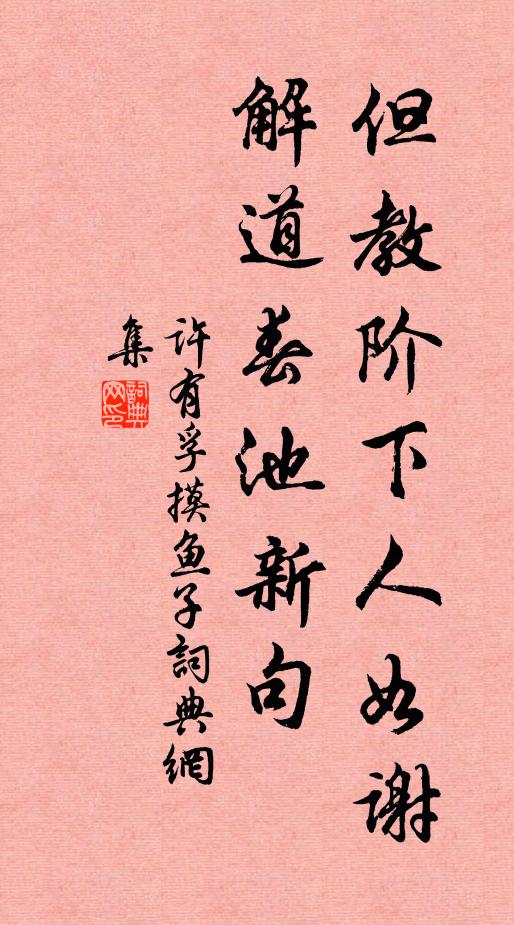 但教阶下人如谢
解道春池新句
许有孚摸鱼子詞典網
集
詞典
网印